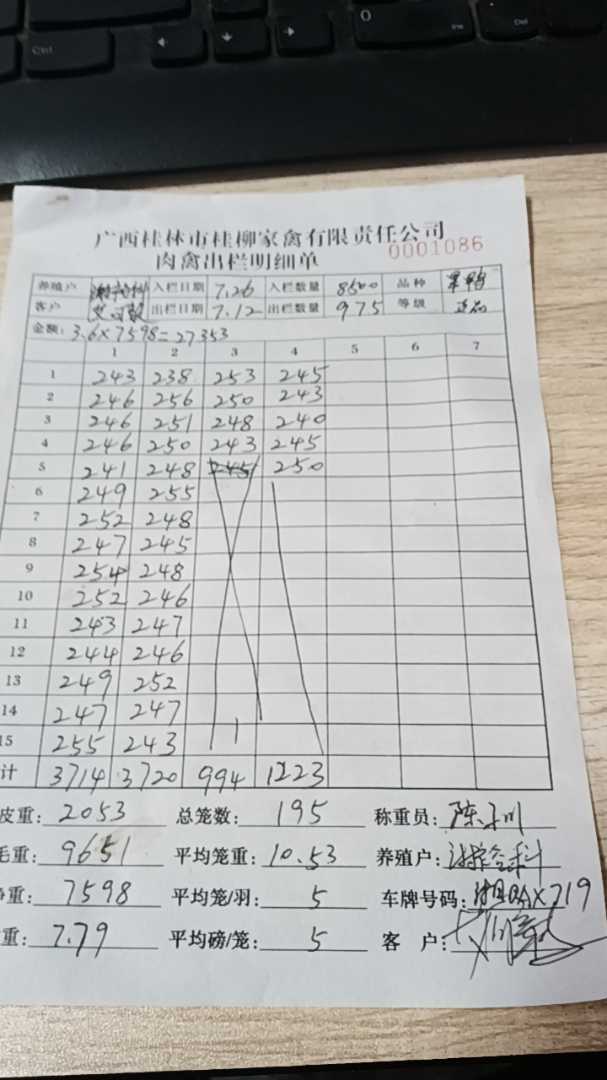 Ctrl
0
Ctrl
Del
广西桂林市桂柳家禽有限责任公司
0001086
肉禽出栏明细单
养殖户 入栏日期 7.26 入栏数量 8500 品种
客户 出栏日期 7.12 出栏数量 975 等级 正品
金额: 3.6×7598=27353
1 2 3 4 5 6 7
1 243 238 253 245
2 246 256 250 243
3 246 251 248 240
4 246 250 243 245
5 241 248 245 250
6 249 255
7 252 248
8 247 245
9 254 248
10 252 246
11 243 247
12 244 246
13 249 252
14 247 247
15 255 243
计 3714 3720 994 1223
皮重: 2053 总笼数: 195 称重员: 陈
毛重: 9651 平均笼重: 10.53 养殖户:
净重: 7598 平均笼/羽: 5 车牌号码: 719
重: 7.79 平均磅/笼: 5 客 户: